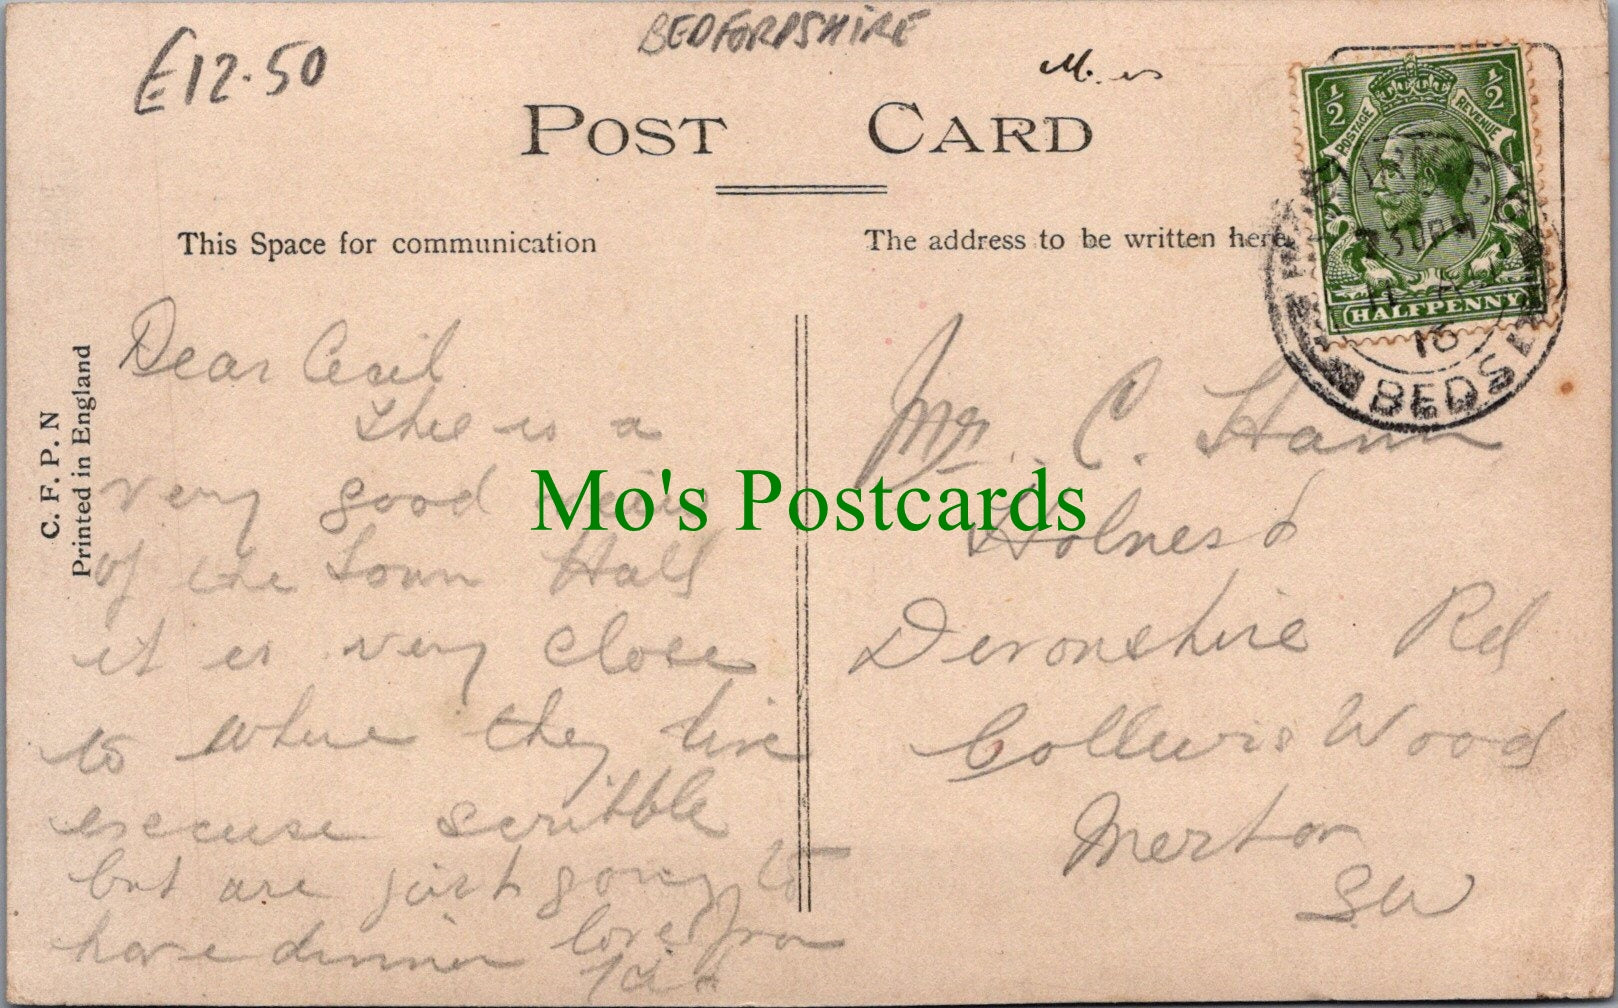 £12.50
BEDFORDSHIRE
POST CARD
This Space for communication
The address to be written here
C. F. P. N
Printed in England
Dear Cecil
This is a
very good view
of the Town Hall
it is very close
to where they live
excuse scribble
but are just going to
have dinner love from
Mr. C. Hann
Holnest
Devonshire Rd
Colliers Wood
Merton
SW
Mo's Postcards
1/2 1/2
POSTAGE REVENUE
HALFPENNY
7.30PM
11
16
BEDS